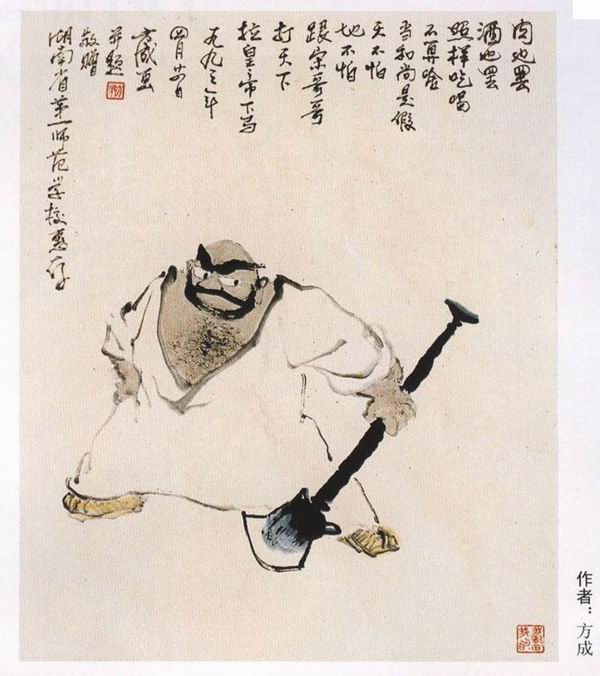 肉也罢
酒也罢
照样吃喝
不算啥
当和尚是假
天不怕
地不怕
跟宋哥哥
打天下
拉皇帝下马
一九九三年
四月
方成画
并题
敬赠
湖南省第一师范学校惠存
作者：方成